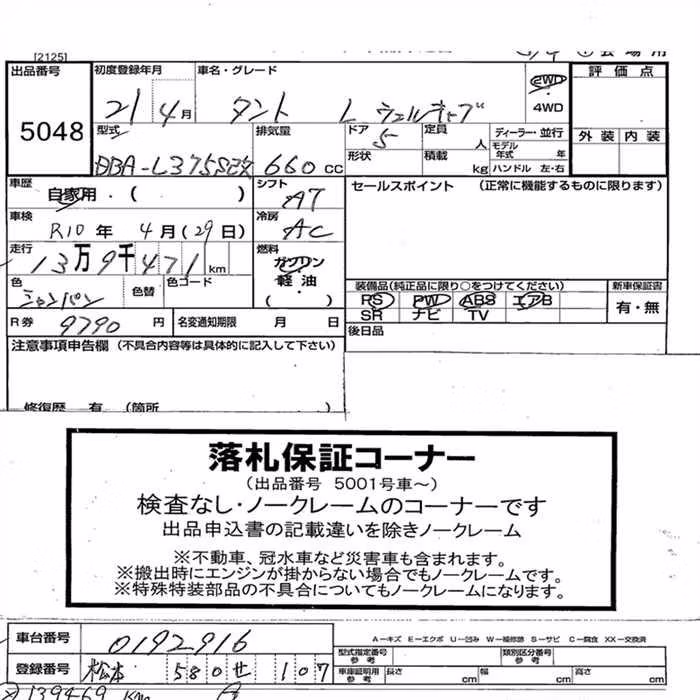 [2125]
出品番号 5048
初度登録年月 21 4月
車名・グレード タント L ウェルキャブ
2WD 4WD
評価点
外装 内装
型式 BBA-L375S改
排気量 660 cc
ドア 5
形状
定員 人
積載 kg
ディーラー・並行
モデル年式 年
ハンドル 左・右
車歴 自家用・( )
シフト AT
セールスポイント (正常に機能するものに限ります)
車検 R10年 4月(29日)
冷房 AC
走行 13万9千471km
燃料 ガソリン 軽油 (・)
色 シャンパン
色替
色コード
装備品(純正品に限り○をつけてください)
PS PW ABS エアB
SR ナビ TV
新車保証書 有・無
R券 9790 円
名変通知期限 月 日
後日品
注意事項申告欄 (不具合内容等は具体的に記入して下さい)
修復歴 有 (箇所 )
落札保証コーナー
(出品番号 5001号車〜)
検査なし・ノークレームのコーナーです
出品申込書の記載違いを除きノークレーム
※不動車、冠水車など災害車も含まれます。
※搬出時にエンジンが掛からない場合でもノークレームです。
※特殊特装部品の不具合についてもノークレームになります。
車台番号 0192916
A-キズ E-エクボ U-凹み W-補修跡 S-サビ C-腐食 XX-交換済
型式指定番号 参考
類別区分番号 参考
登録番号 松本 580 せ 107
車庫証明用 参考 長さ cm 幅 cm 高さ cm
139469 Km